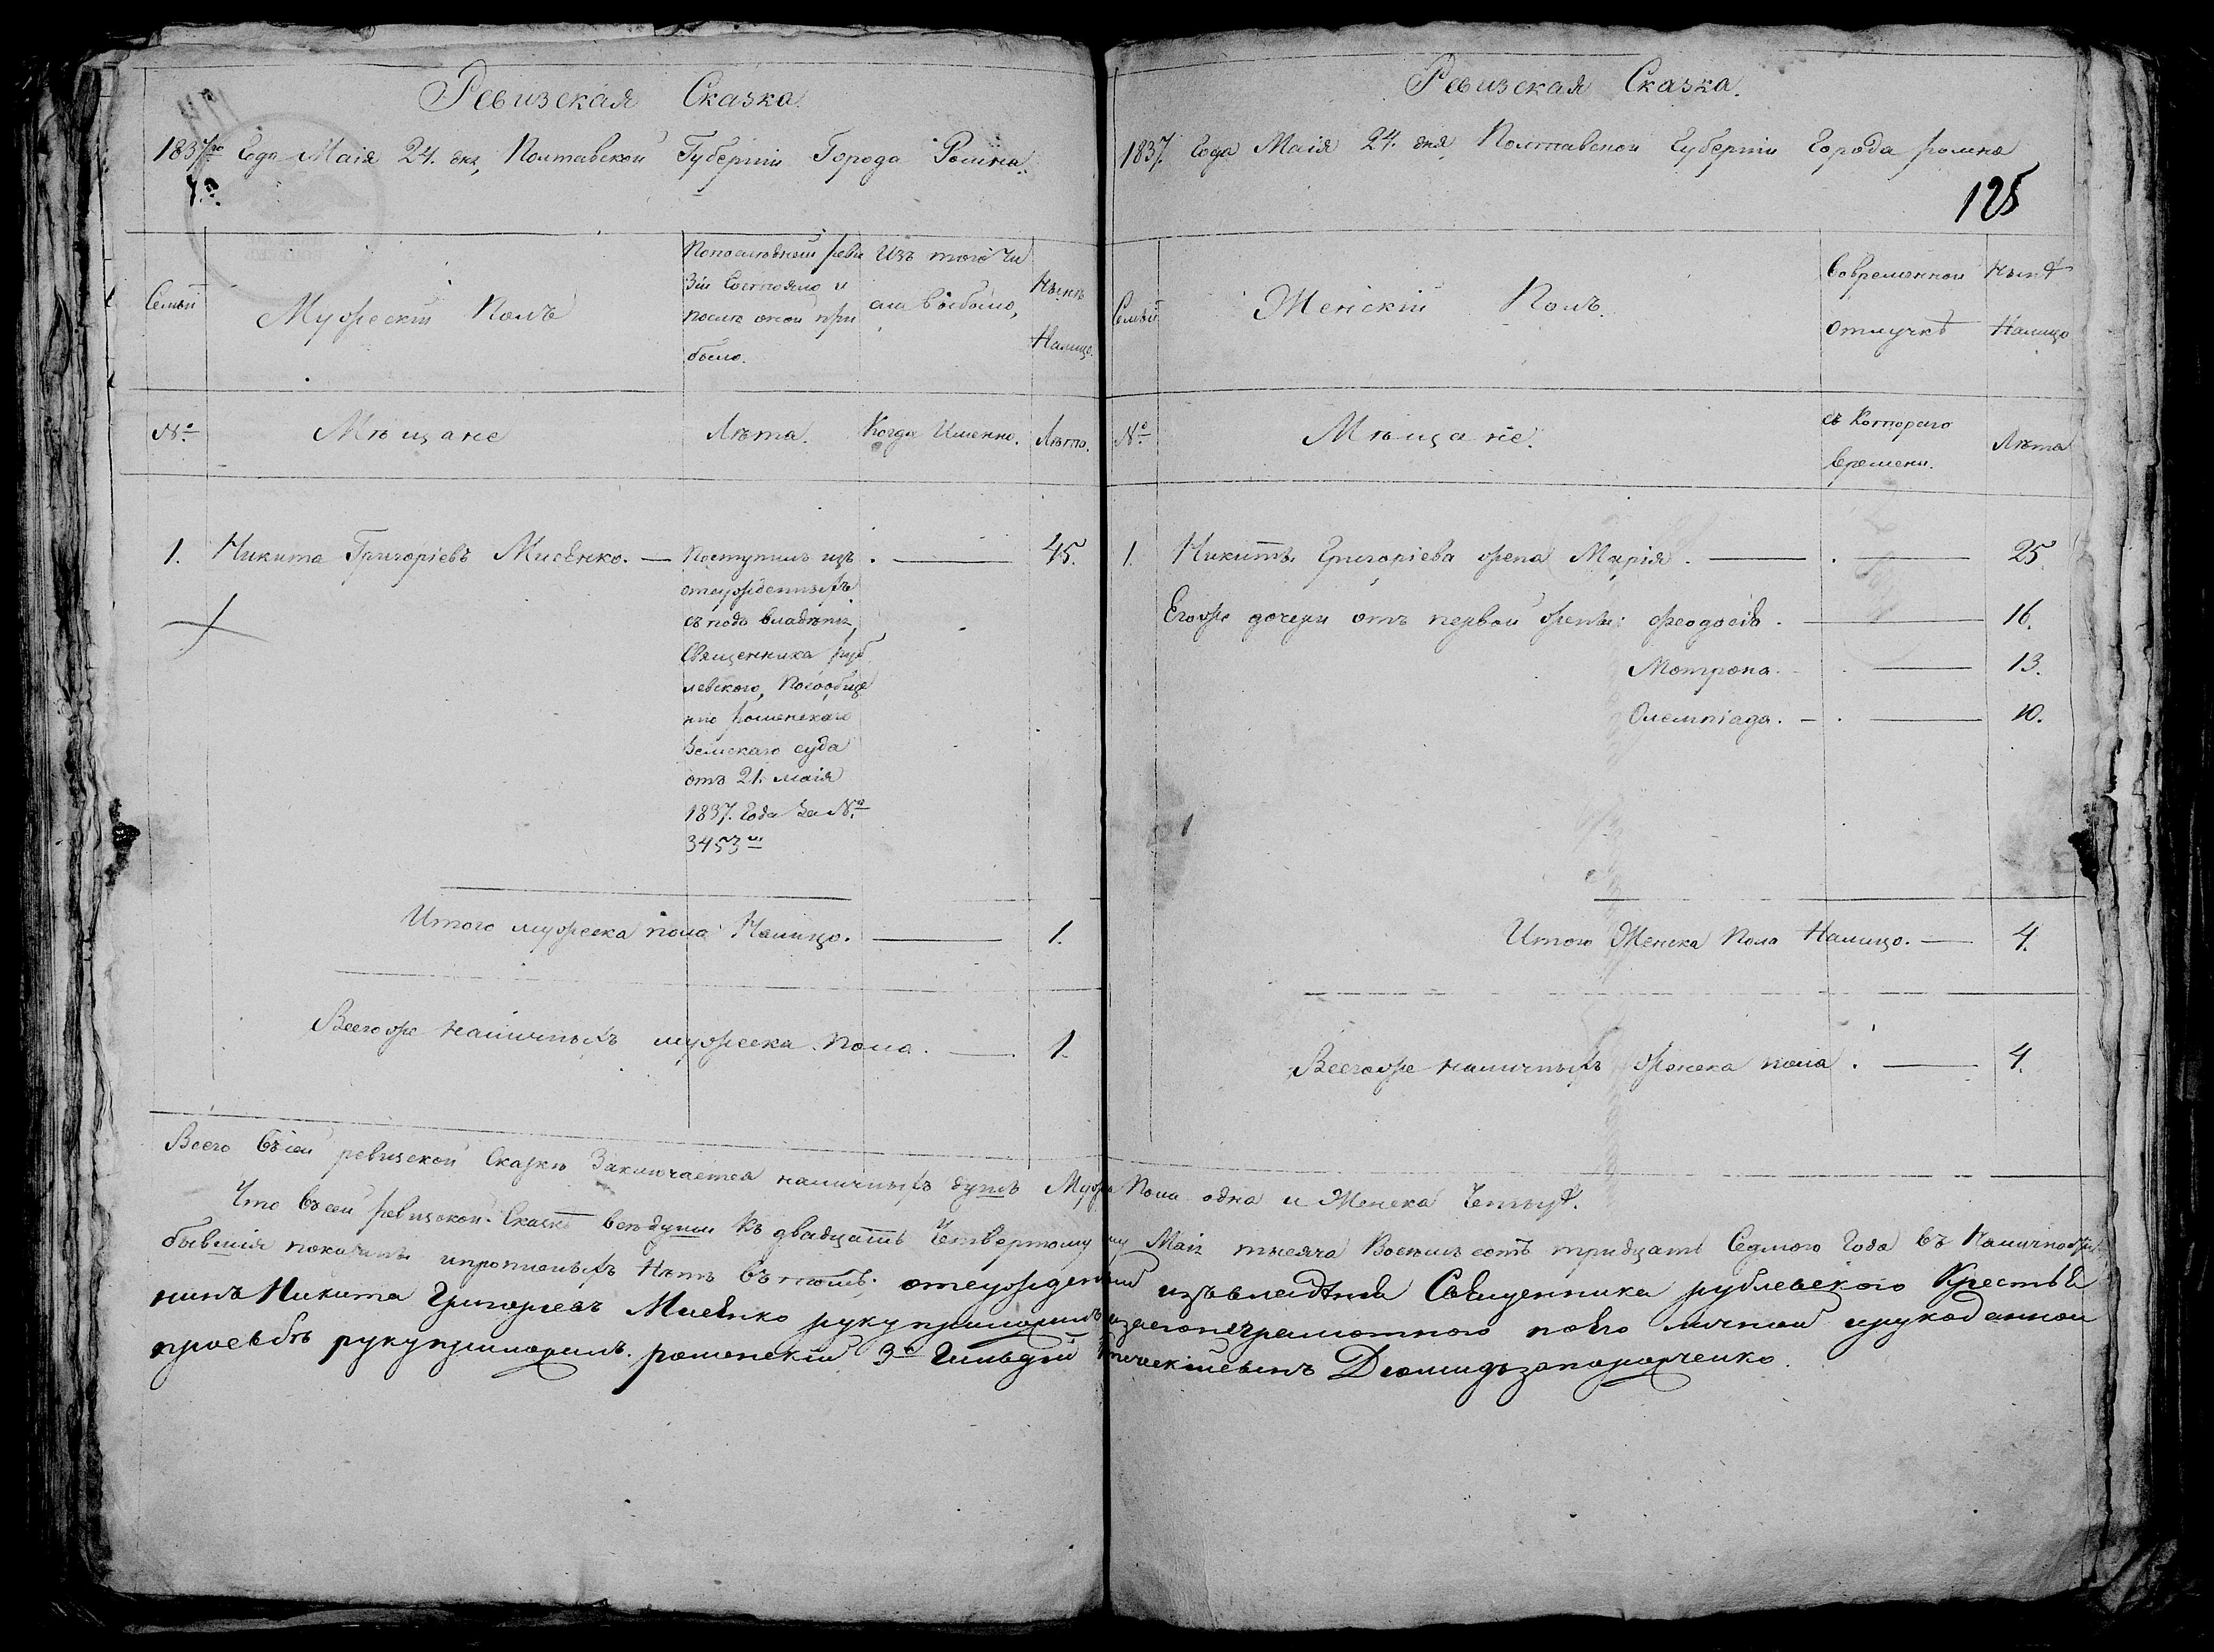 Ревизская Сказка.
1837го Года Маія 24. дня, Полтавской Губерніи Города Ромна.
Семьи
Мужескій Полъ
Попоследней реви
зіи Состояло и
после оной при
было.
Изъ того чи
сла выбыло,
Нынѣ
Налицо.
№
Мѣщане
Лѣта.
Когда Именно.
Лѣта.
1. Никита Григоріевъ Мисенко. — Поступилъ изъ . — 45.
отсужденныхъ
съ подъ владѣнія,
Священника руб
левского, Посообще
нію роменскаго
Земскаго суда
отъ 21. маія
1837. Года За №
3453м
Итого мужеска пола Налицо. — 1.
Всегоже наличныхъ мужеска пола. — 1.
Ревизская Сказка.
1837. Года Маія 24. дня Полтавской Губерніи Города ромна
125
Семьи
Женскій Полъ.
Вовременной
отлучкѣ
Нынѣ
Налицо
№
Мѣщане.
съ Котораго
времени.
Лѣта
1. Никиты Григоріева жена Марія. — . — 25
Егоже дочери отъ первой жены: феодосія. — 16.
Мотрона. . — 13.
Олемпіада. — . — 10.
Итого Женска Пола Налицо. — 4.
Всегоже наличныхъ женска пола. — 4.
Всего Въсей ревизской Сказкѣ Заключается наличныхъ душъ Муж. Пола одна и Женска Четыре.
Что Въсей ревизской Сказкѣ всѣ души Къ двадцать Четвертому Маія тысяча Восемь сотъ тридцать Седмого Года въ Наличности
бывшія показаны ипрописныхъ Нѣтъ Вътомъ; отсужденный изъвладѣнія Священника рублевского Крестья
нинъ Никита Григорьевъ Мисенко руку приложилъ азанегонеграмотного поего личной ирукоданной
прозьбѣ рукуприложилъ. роменскій 3й Гильдіи купеческійсынъ Дiомидъзапорожченко.